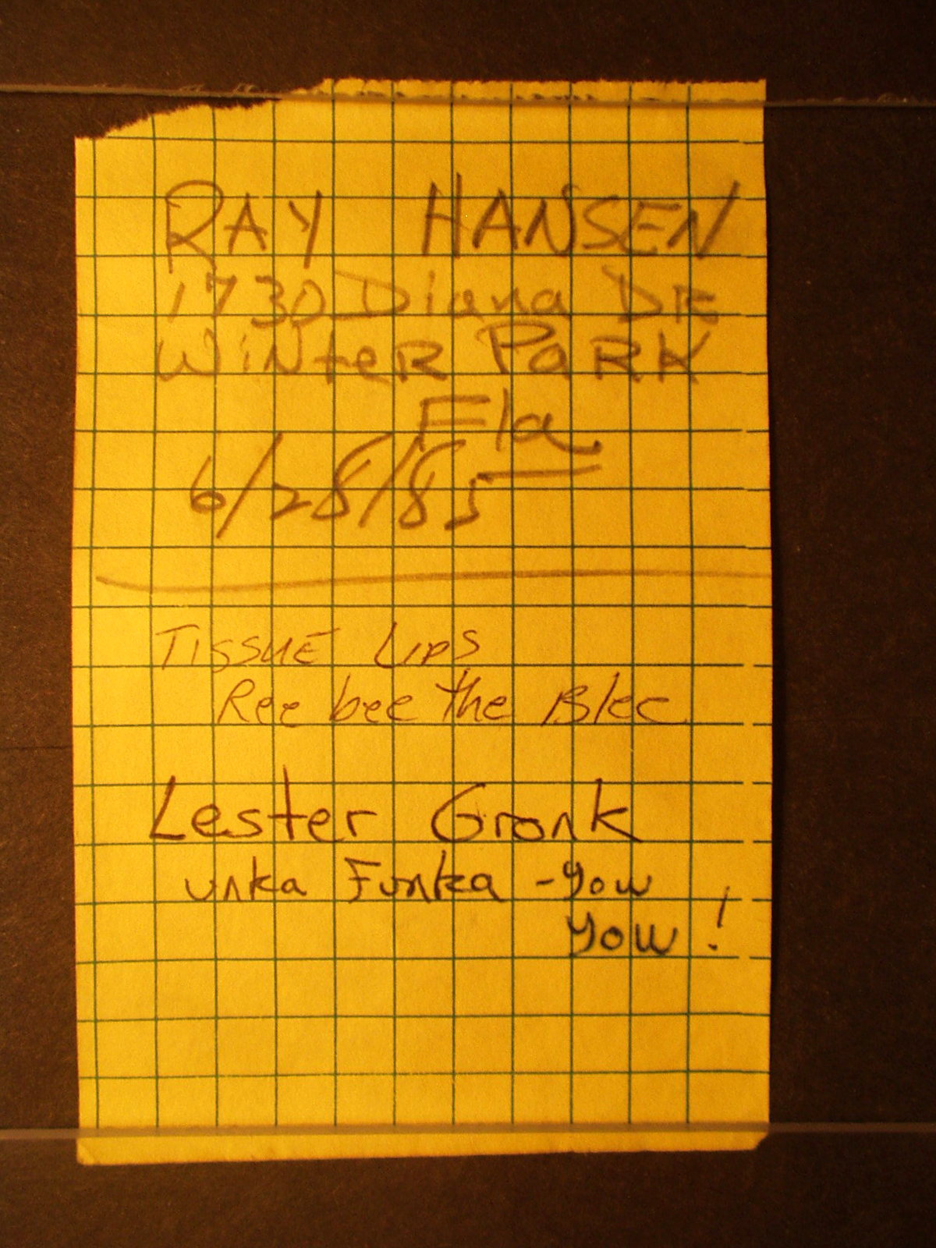 RAY HANSEN
1730 Diana DR
WiNteR PaRK
Fla.
6/28/85
TISSUE LIPS
Ree bee the Blee
Lester Gronk
unka Funka - yow
yow!